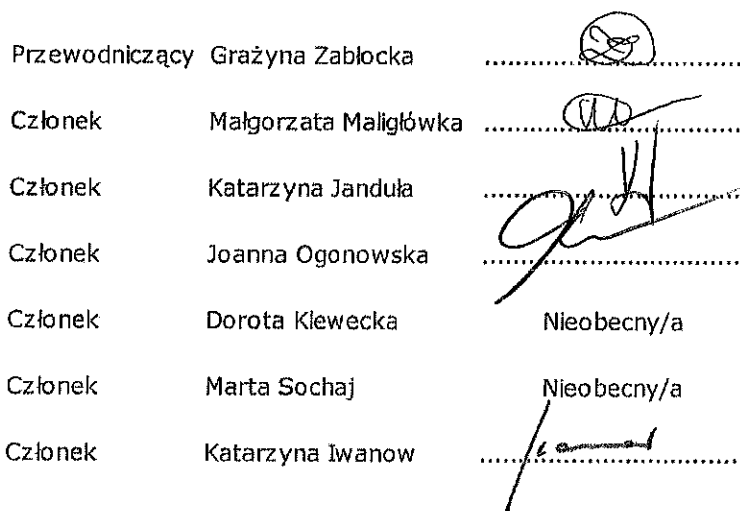 Przewodniczący Grażyna Zabłocka
Członek Małgorzata Maligłówka
Członek Katarzyna Janduła
Członek Joanna Ogonowska
Członek Dorota Klewecka Nieobecny/a
Członek Marta Sochaj Nieobecny/a
Członek Katarzyna Iwanow